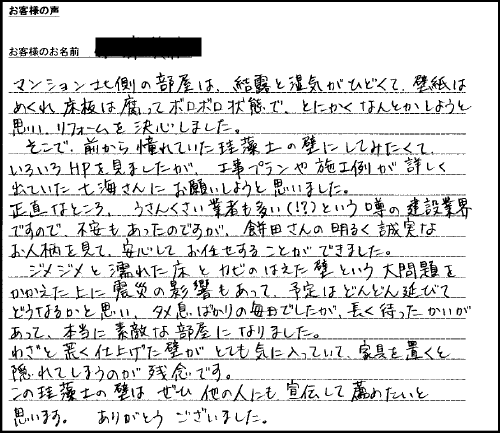 お客様の声
お客様のお名前
マンション北側の部屋は、結露と湿気がひどくて、壁紙は
めくれ、床板は腐ってボロボロ状態で、とにかくなんとかしようと
思い、リフォームを決心しました。
そこで、前から憧れていた珪藻土の壁にしてみたくて、
いろいろHPを見ましたが、工事プランや施工例が詳しく
出ていた七海さんにお願いしようと思いました。
正直なところ、うさんくさい業者も多い(!?)という噂の建設業界
ですので、不安もあったのですが、餅田さんの明るく誠実な
お人柄を見て、安心してお任せすることができました。
ジメジメと濡れた床とカビのはえた壁という大問題を
かかえた上に震災の影響もあって、予定はどんどん延びて
どうなるかと思い、タメ息ばかりの毎日でしたが、長く待ったかいが
あって、本当に素敵な部屋になりました。
わざと荒く仕上げた壁がとても気に入っていて、家具を置くと
隠れてしまうのが残念です。
この珪藻土の壁はぜひ他の人にも宣伝して薦めたいと
思います。 ありがとうございました。